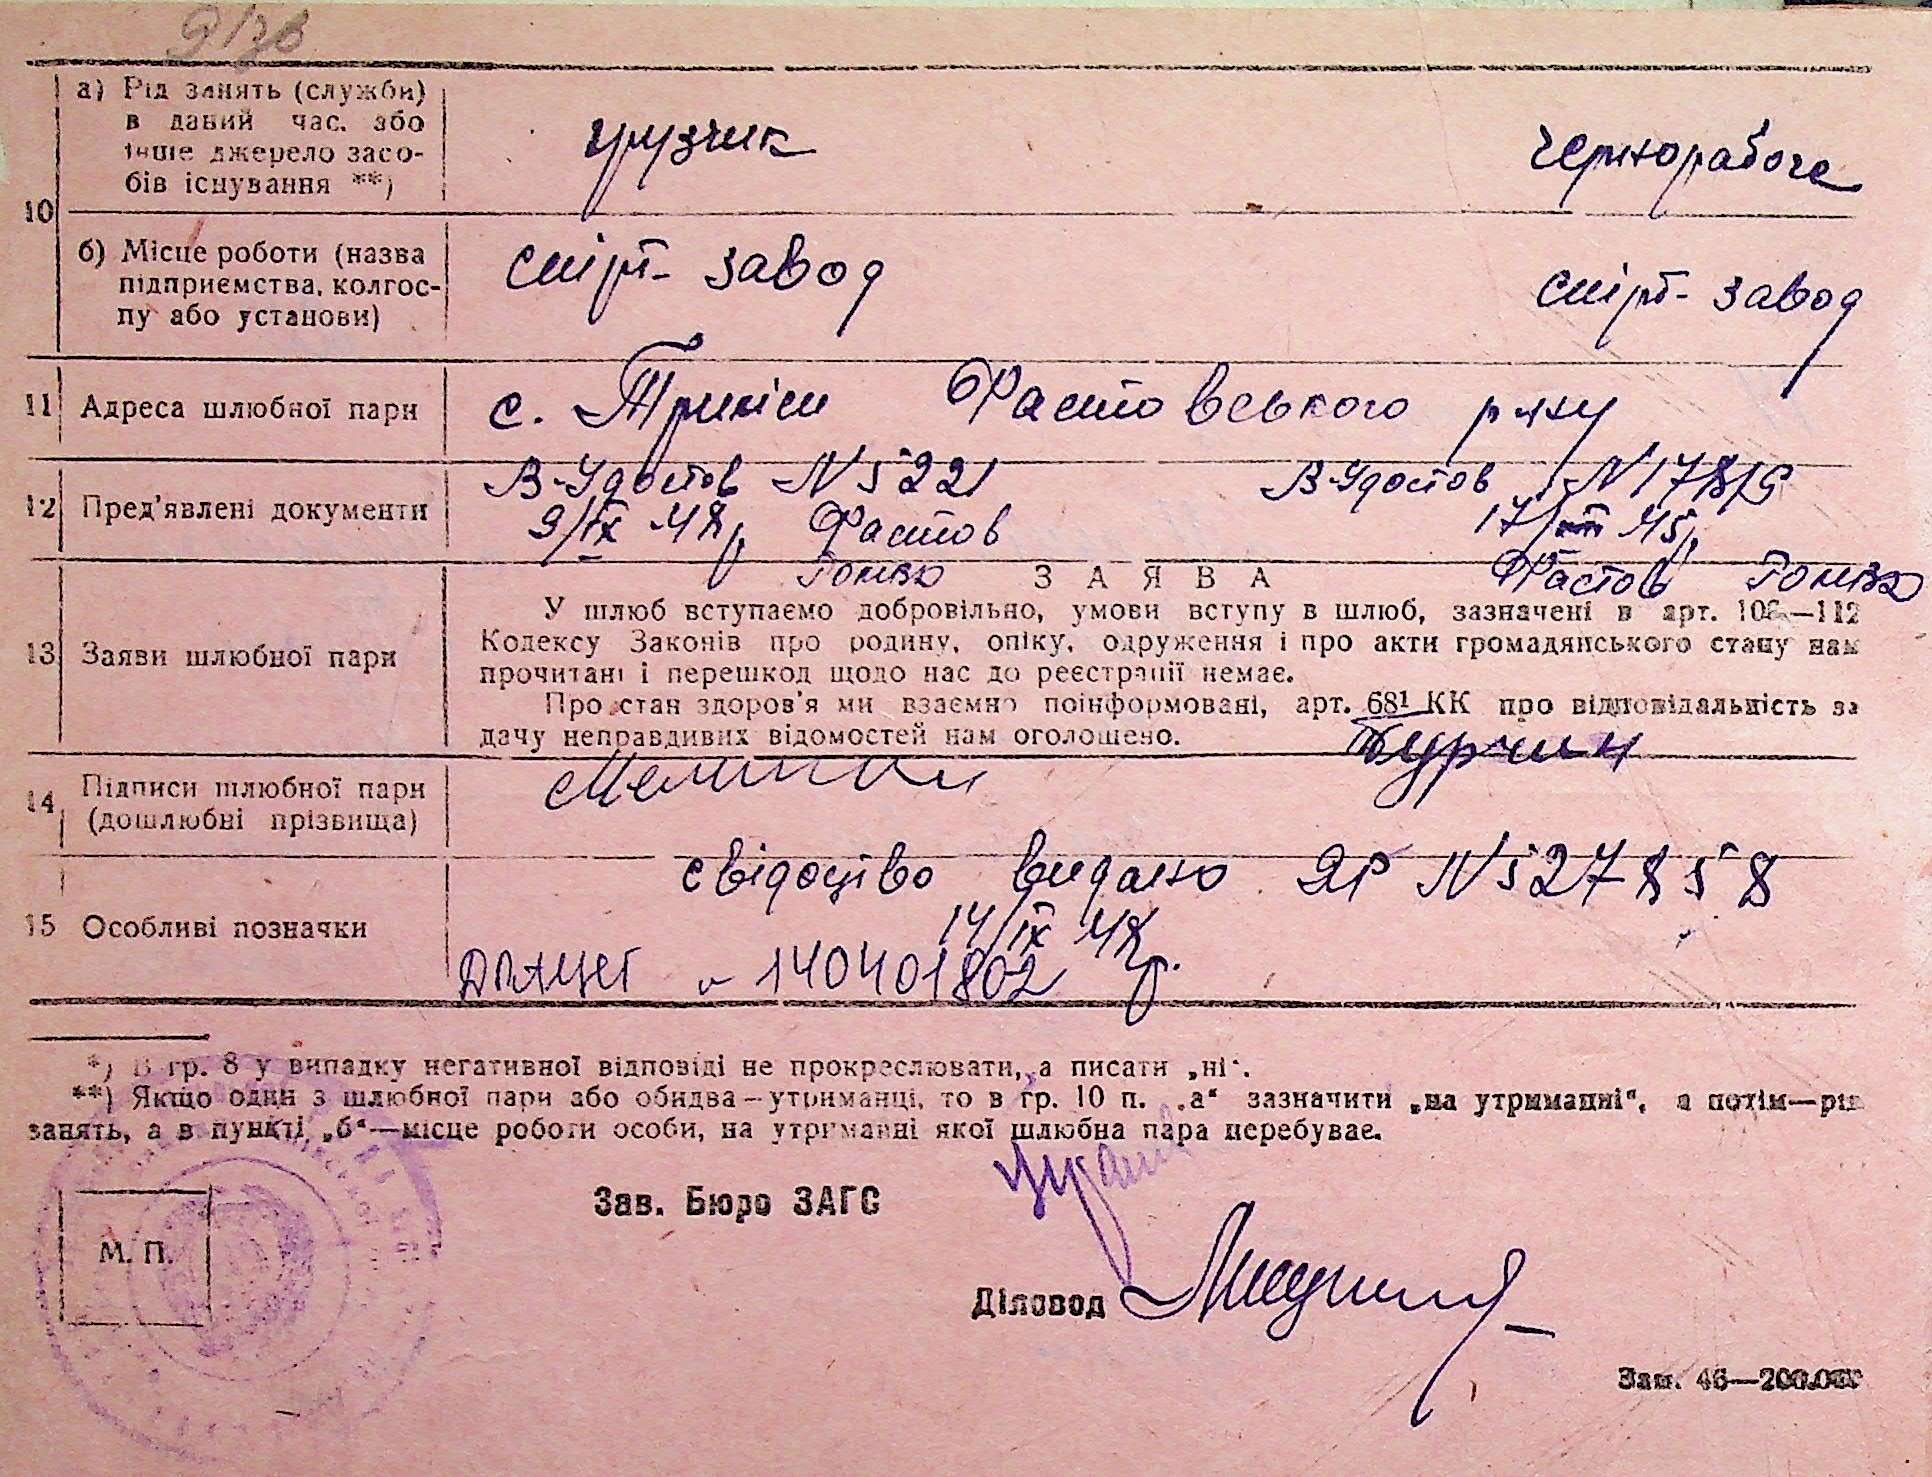 а) Рід занять (служби)
в даний час, або
інше джерело засо-
бів існування **)
грузчик
чернорабоче
10
б) Місце роботи (назва
підприємства, колгос-
пу або установи)
спірт-завод
спірт-завод
11 Адреса шлюбної пари
с. Триліси Фастовського р-ну
12 Пред'явлені документи
В-Удостов N 5221
9/IX 48р. Фастов
В-Удостов
17/ 45р.
Фастов
13 Заяви шлюбної пари
ЗАЯВА
У шлюб вступаємо добровільно, умови вступу в шлюб, зазначені в арт. 108—112
Кодексу Законів про родину, опіку, одруження і про акти громадянського стану нам
прочитані і перешкод щодо нас до реєстрації немає.
Про стан здоров'я ми взаємно поінформовані, арт. 68¹ КК про відповідальність за
дачу неправдивих відомостей нам оголошено.
14 Підписи шлюбної пари
(дошлюбні прізвища)
15 Особливі позначки
свідоцтво видано ЯР N 527858
14/IX 48р.
ДРАЦСГ - 140401802
*) В гр. 8 у випадку негативної відповіді не прокреслювати, а писати „ні".
**) Якщо один з шлюбної пари або обидва—утриманці, то в гр. 10 п. „а" зазначити „на утриманні", а потім—рід
занять, а в пункті „б"—місце роботи особи, на утриманні якої шлюбна пара перебуває.
Зав. Бюро ЗАГС
М. П.
Діловод
Зам. 46—200.000